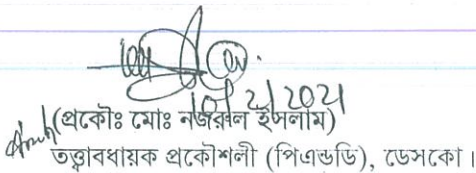 10/2/2021
(প্রকৌঃ মোঃ নজরুল ইসলাম)
তত্ত্বাবধায়ক প্রকৌশলী (পিএন্ডডি), ডেসকো।